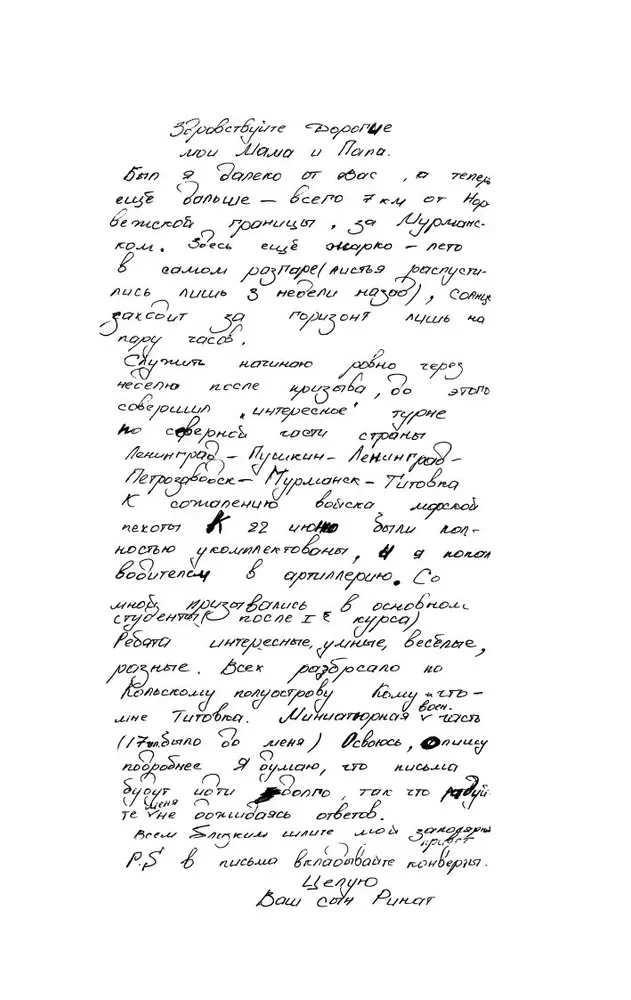 Здравствуйте Дорогие
мои Мама и Папа.
Был я далеко от Вас, а тепер
ещё дальше – всего 7 км от Нор
вежской границы, за Мурманс-
ком. Здесь ещё жарко – лето
в самом разгаре (листья распусти-
лись лишь 3 недели назад), солнце
заходит за горизонт лишь на
пару часов.
Служить начинаю ровно через
неделю после призыва, до этого
совершил „интересное" турне
по северной части страны
Ленинград – Пушкин – Ленинград –
Петрозаводск – Мурманск – Титовка
К сожалению войска морской
пехоты К 22 июню были пол-
ностью укомплектованы, и я попал
водителем в артиллерию. Со
мной призывались в основном
студенты (после I курса)
Ребята интересные, умные, весёлые,
разные. Всех разбрсало по
Кольскому полуострову Кому что –
мне Титовка. Миниатюрная воен. часть
(17 было до меня) Освоюсь, опишу
подробнее Я думаю, что письма
будут идти долго, так что радуй
те меня не дожидаясь ответов.
Всем Близким шлите мой заполярный
привет
P.S в письма вкладывайте конверты.
Целую
Ваш сын Ринат